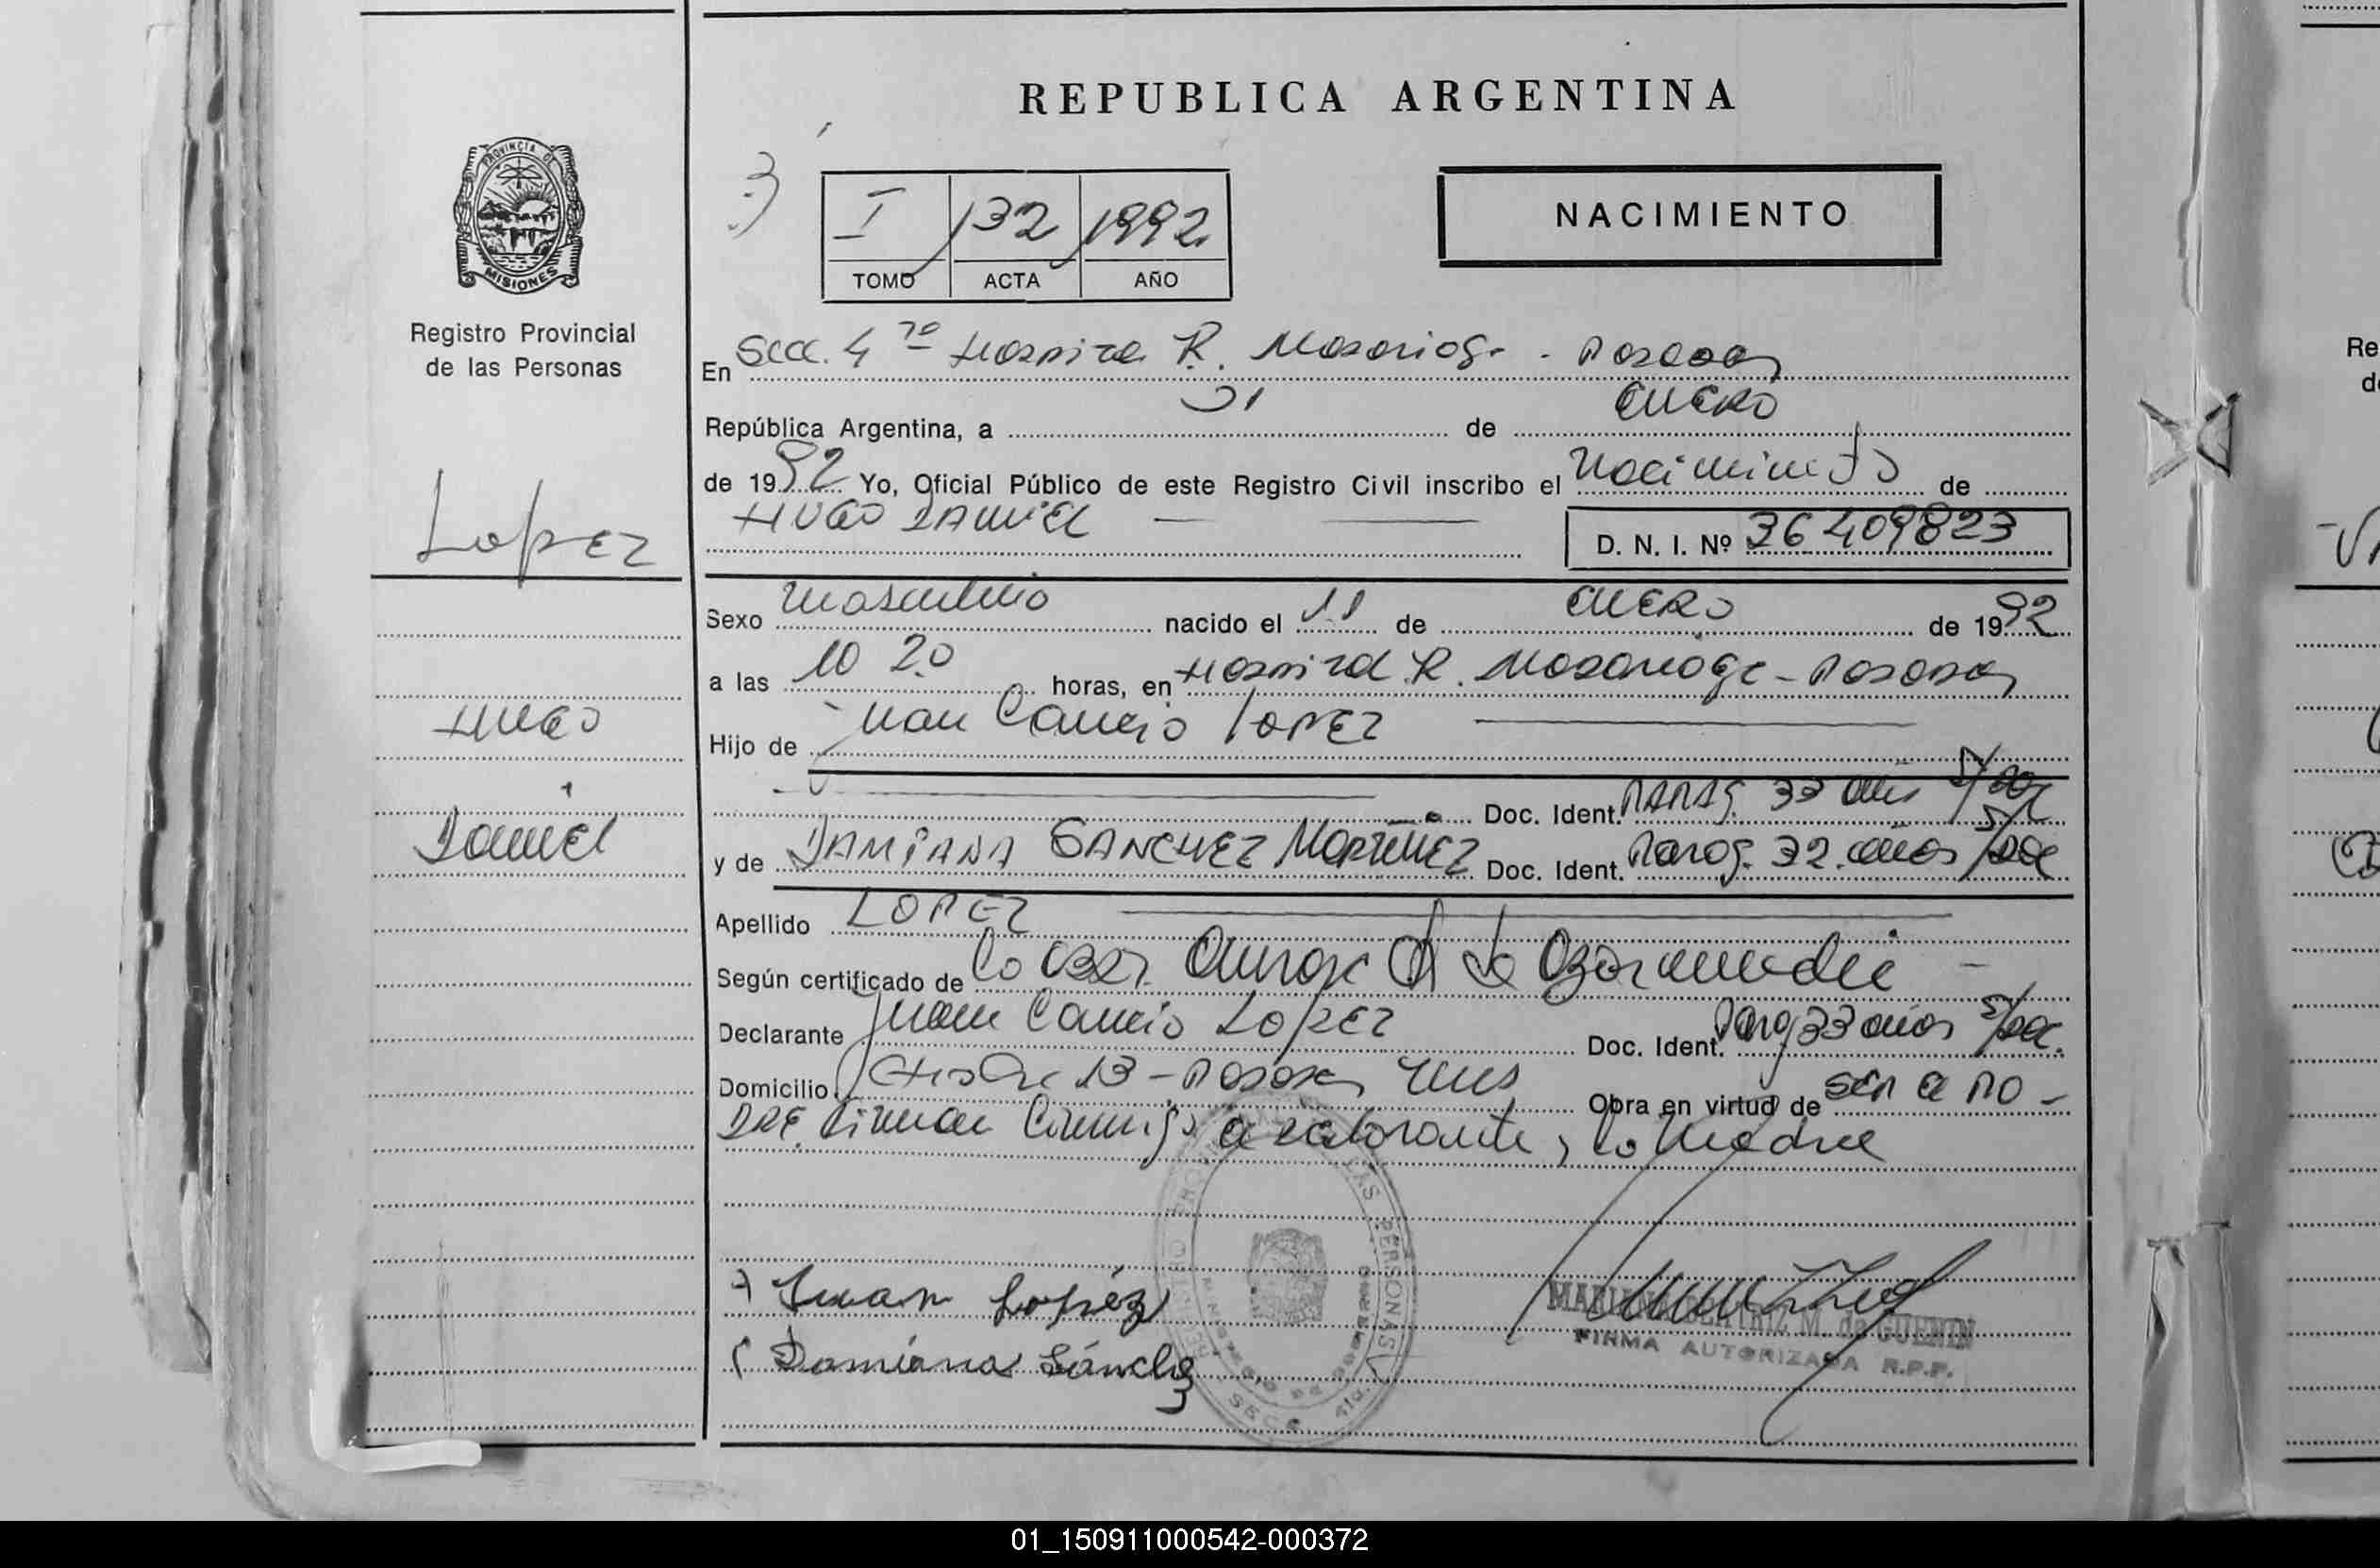 REPUBLICA ARGENTINA
PROVINCIA DE
MISIONES
Registro Provincial
de las Personas
I 132 1992
TOMO ACTA AÑO
NACIMIENTO
En Secc. 4 Hospital R. Madariaga - Posadas
República Argentina, a 31 de ENERO
de 1992 Yo, Oficial Público de este Registro Civil inscribo el Nacimiento de
HUGO DANIEL
D. N. I. Nº 36409823
Lopez
Hugo
Daniel
Sexo Masculino nacido el 11 de ENERO de 1992
a las 10 20 horas, en Hospital R. Madariaga - Posadas
Hijo de Juan Cancio LOPEZ
Doc. Ident. PARAG. 33 años S/Doc
y de DAMIANA SANCHEZ MARTINEZ Doc. Ident. Parag. 32 años S/Doc
Apellido LOPEZ
Según certificado de la Obst. Aurora de
Declarante Juan Cancio Lopez Doc. Ident. Parag 33 años S/Doc.
Domicilio 13 - Posadas Mnes Obra en virtud de SER el PA-
DRE. Firman Conmigo el declarante, la Madre
Juan López
Damiana Sánchez
MARIANA BEATRIZ M. de GUENIN
FIRMA AUTORIZADA R.P.P.
01_150911000542-000372